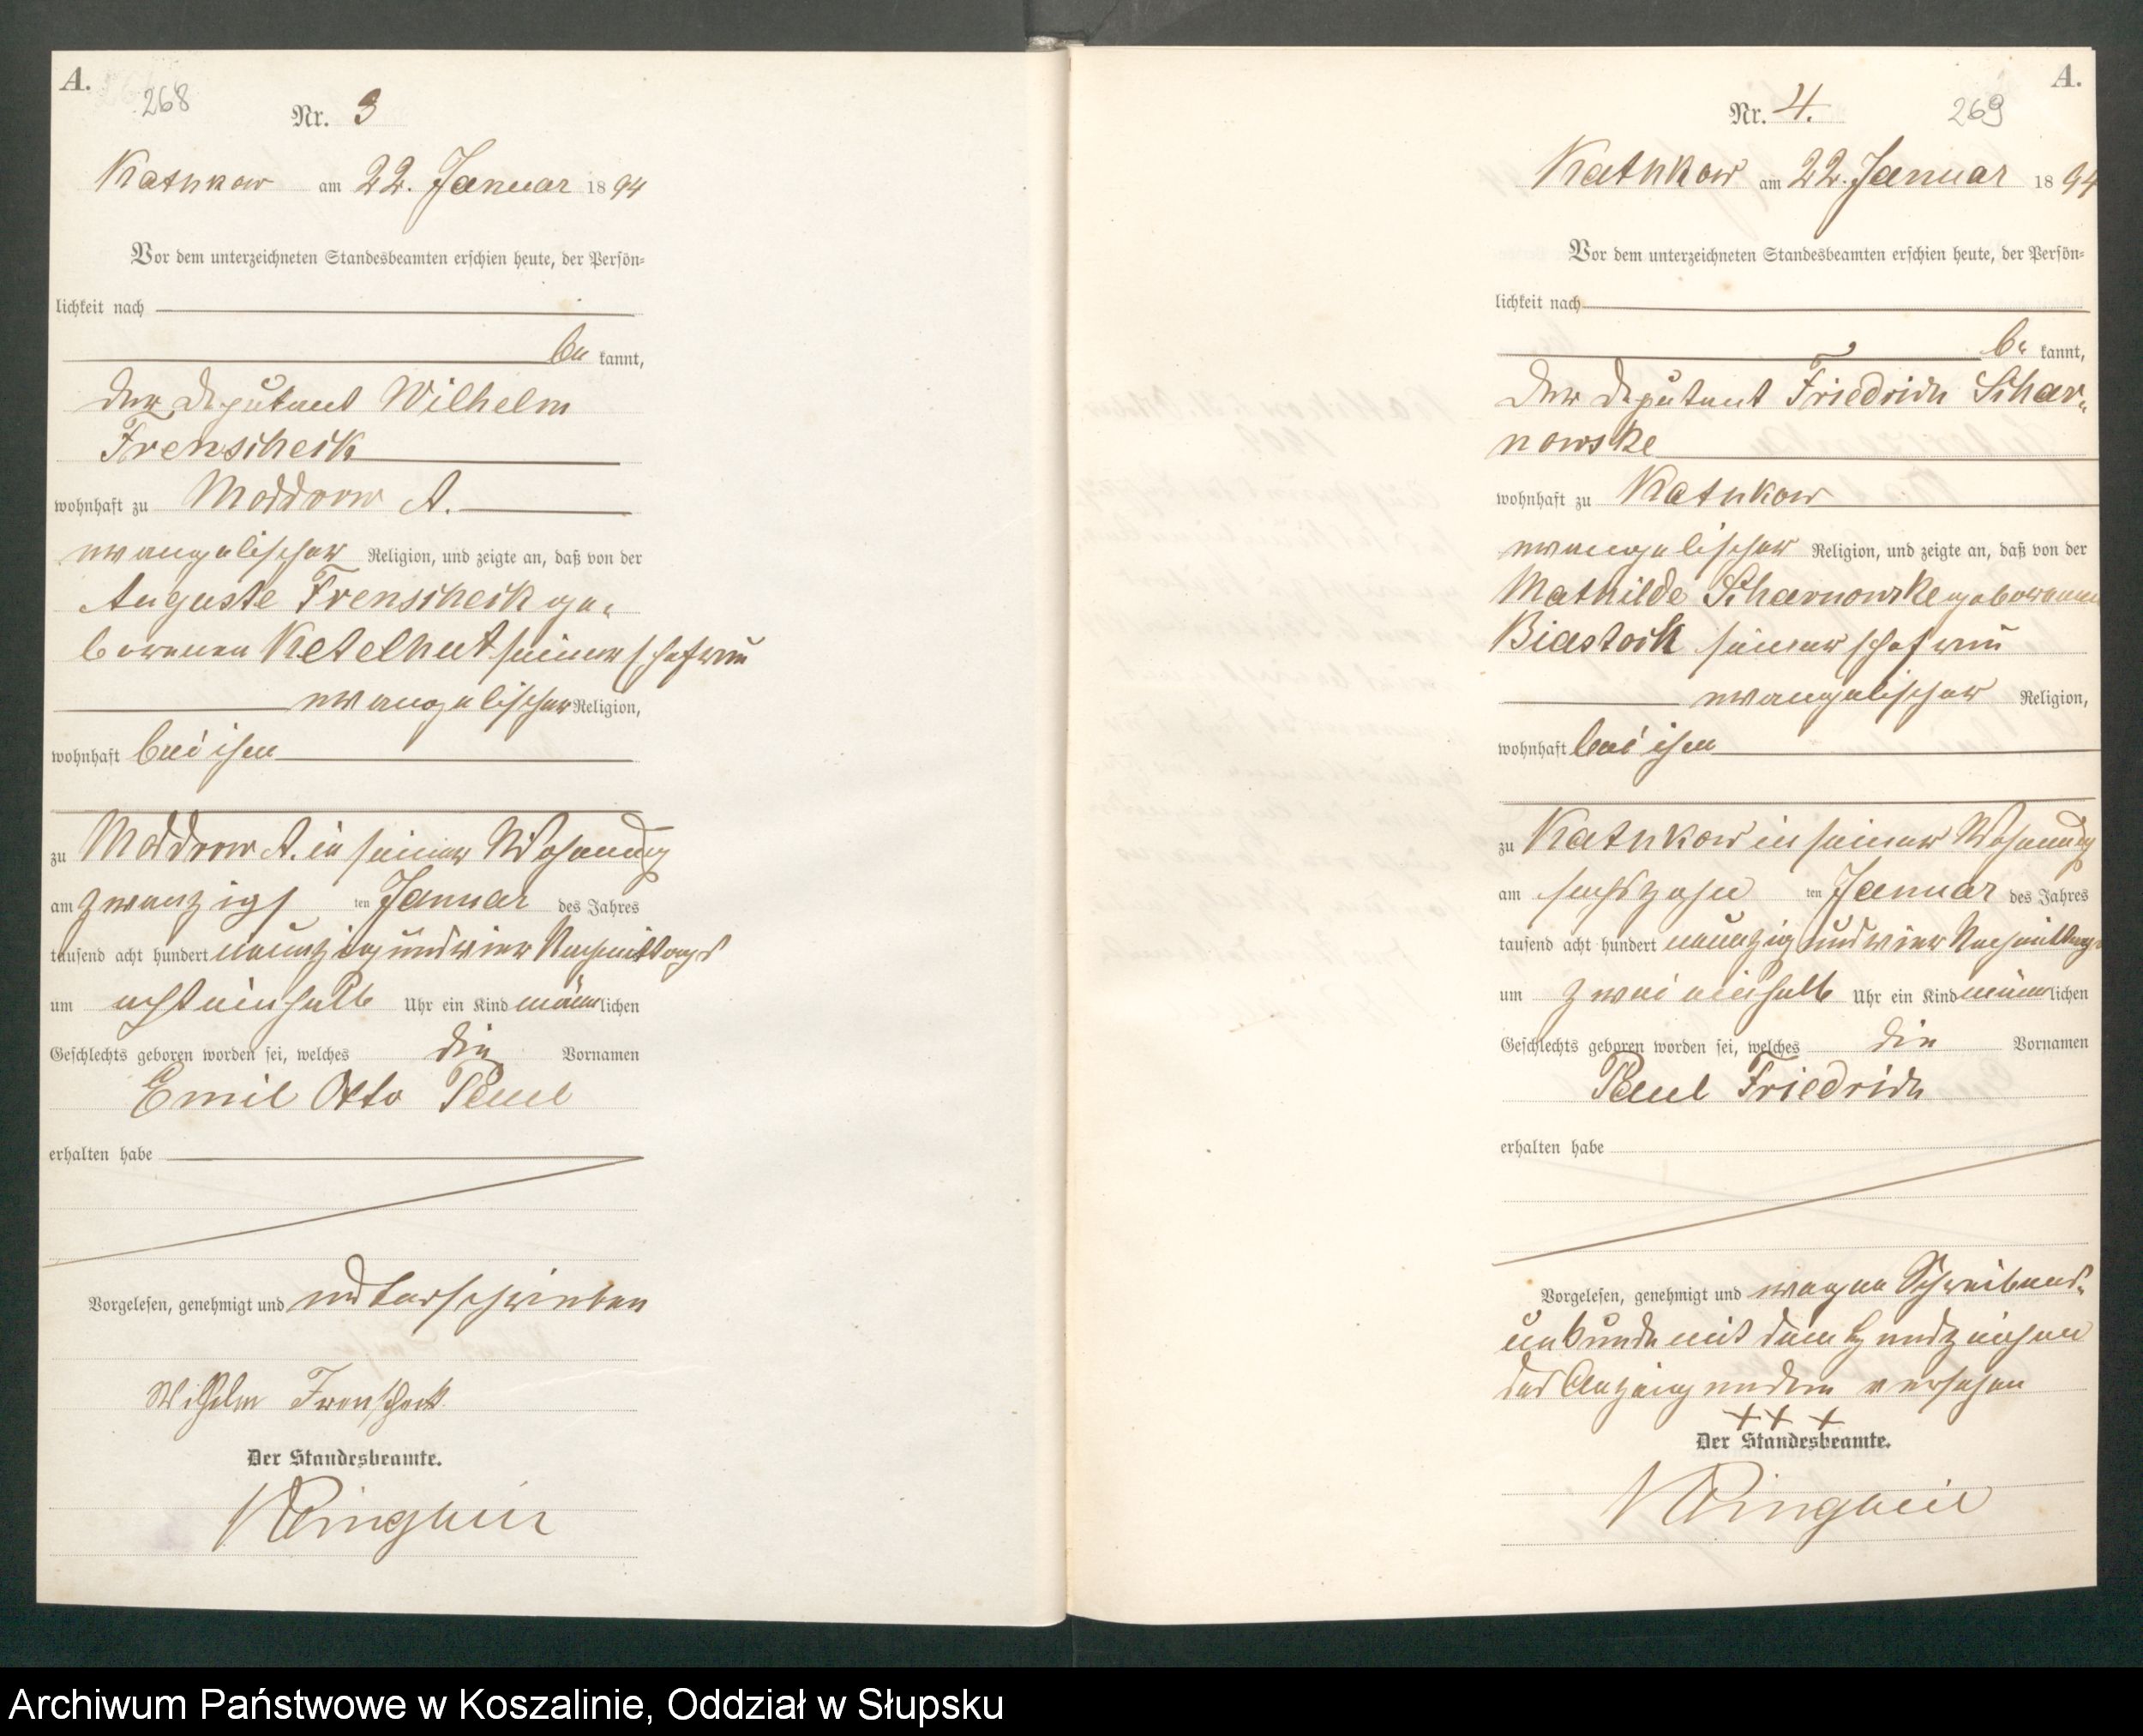 A.
268
Nr. 3
Kathkow am 22. Januar 1894
Vor dem unterzeichneten Standesbeamten erschien heute, der Persön=
lichkeit nach
be kannt,
der Deputant Wilhelm
Frenscheck
wohnhaft zu Moddrow A.
evangelischer Religion, und zeigte an, daß von der
Auguste Frenscheck ge-
borenen Ketelhut seiner Ehefrau
evangelischer Religion,
wohnhaft bei ihm
zu Moddrow A. in seiner Wohnung
am zwanzigs ten Januar des Jahres
tausend acht hundert neunzig und vier Nachmittags
um acht einhalb Uhr ein Kind männ lichen
Geschlechts geboren worden sei, welches die Vornamen
Emil Otto Paul
erhalten habe
Vorgelesen, genehmigt und unterschrieben
Wilhelm Frenscheck
Der Standesbeamte.
A.
269
Nr. 4.
Kathkow am 22. Januar 1894
Vor dem unterzeichneten Standesbeamten erschien heute, der Persön=
lichkeit nach
be kannt,
der Deputant Friedrich Schar-
nowske
wohnhaft zu Kathkow
evangelischer Religion, und zeigte an, daß von der
Mathilde Scharnowske geborenen
Biastock seiner Ehefrau
evangelischer Religion,
wohnhaft bei ihm
zu Kathkow in seiner Wohnung
am sechszehn ten Januar des Jahres
tausend acht hundert neunzig und vier Nachmittags
um zwei einhalb Uhr ein Kind männ lichen
Geschlechts geboren worden sei, welches die Vornamen
Paul Friedrich
erhalten habe
Vorgelesen, genehmigt und wegen Schreibens-
unkunde mit dem Handzeichen
des Anzeigenden versehen
+ + +
Der Standesbeamte.
Archiwum Państwowe w Koszalinie, Oddział w Słupsku